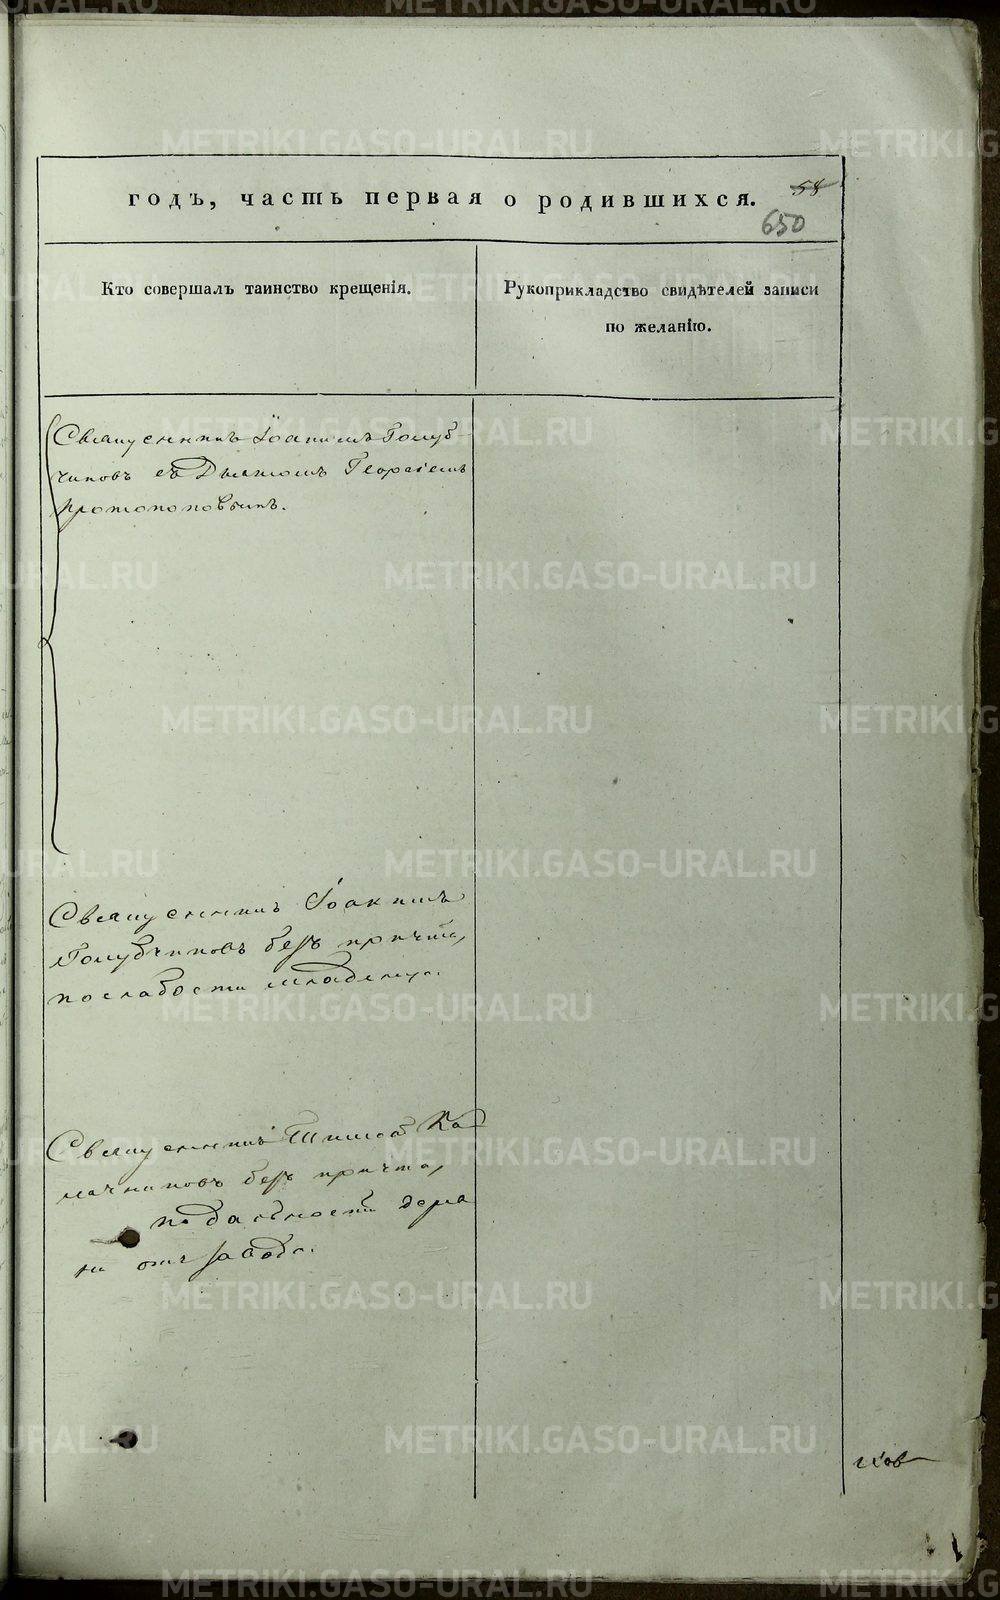 годъ, часть первая о родившихся.
58
650
Кто совершалъ таинство крещенія.
Рукоприкладство свидѣтелей записи
по желанію.
Священникъ Іоакимъ Голуб-
чиковъ съ Дьякомъ Георгіемъ
Протопоповымъ.
Священникъ Іоакимъ
Голубчиковъ безъ причта,
по слабости младенца.
Священникъ Тимоѳ Ка
мачниковъ безъ причта,
по дальности
отъ завода.
METRIKI.GASO-URAL.RU